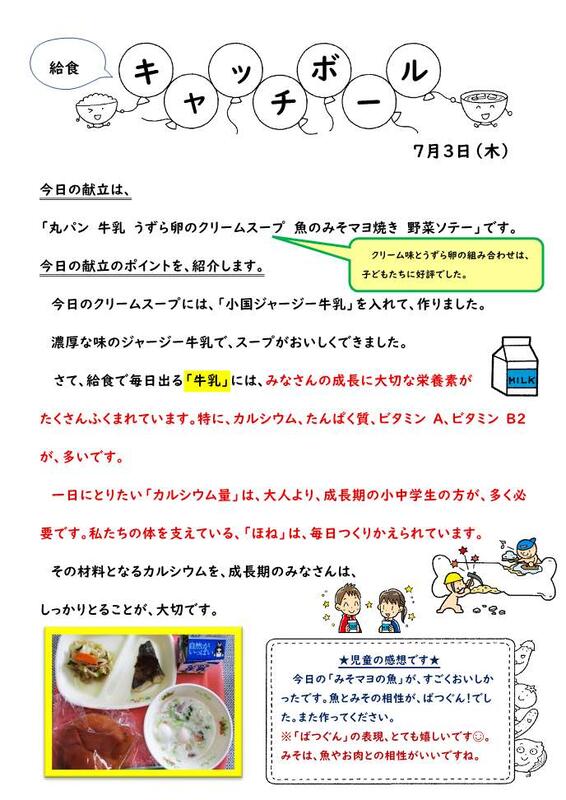 給食
キャッチボール
7月3日(木)
今日の献立は、
「丸パン 牛乳 うずら卵のクリームスープ 魚のみそマヨ焼き 野菜ソテー」です。
クリーム味とうずら卵の組み合わせは、
子どもたちに好評でした。
今日の献立のポイントを、紹介します。
今日のクリームスープには、「小国ジャージー牛乳」を入れて、作りました。
濃厚な味のジャージー牛乳で、スープがおいしくできました。
MILK
さて、給食で毎日出る「牛乳」には、みなさんの成長に大切な栄養素が
たくさんふくまれています。特に、カルシウム、たんぱく質、ビタミン A、ビタミン B2
が、多いです。
一日にとりたい「カルシウム量」は、大人より、成長期の小中学生の方が、多く必
要です。私たちの体を支えている、「ほね」は、毎日つくりかえられています。
その材料となるカルシウムを、成長期のみなさんは、
しっかりとることが、大切です。
自然が
いっぱい
★児童の感想です★
今日の「みそマヨの魚」が、すごくおいしか
ったです。魚とみその相性が、ばつぐん！でし
た。また作ってください。
※「ばつぐん」の表現、とても嬉しいです☺。
みそは、魚やお肉との相性がいいですね。